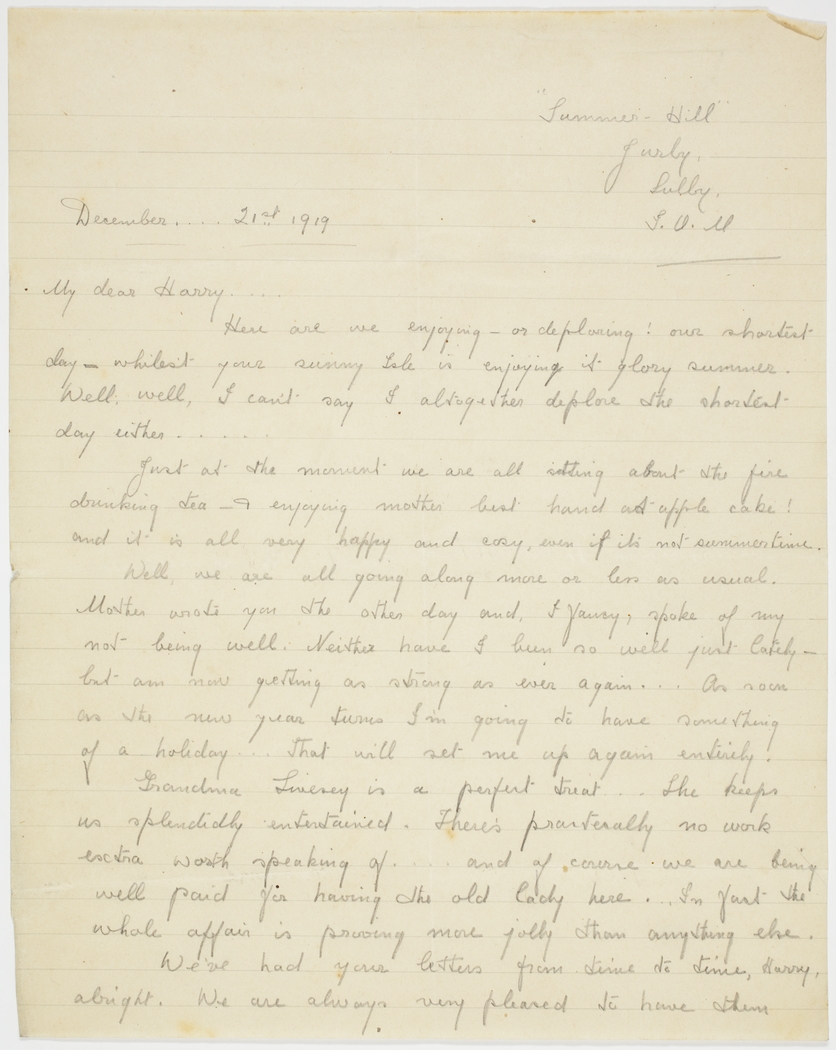 "Summer-Hill"
Jurby,
Sulby,
I. O. M
December.... 21st 1919
My dear Harry....
Here are we enjoying – or deploring! our shortest
day – whilest your sunny Isle is enjoying it glory summer.
Well, well, I can't say I altogether deplore the shortest
day either......
Just at the moment we are all sitting about the fire
drinking tea – & enjoying mother best hand at apple cake!
and it is all very happy and cosy, even if it's not summertime.
Well, we are all going along more or less as usual.
Mother wrote you the other day and, I fancy, spoke of my
not being well. Neither have I been so well just lately –
but am now getting as strong as ever again... As soon
as the new year turns I'm going to have something
of a holiday... That will set me up again entirely.
Grandma Livesey is a perfect treat... She keeps
us splendidly entertained. There's practerally no work
exctra worth speaking of.... and of course we are being
well paid for having the old lady here... In fact the
whole affair is proving more jolly than anything else.
We've had your letters from time to time, Harry,
alright. We are always very pleased to have them